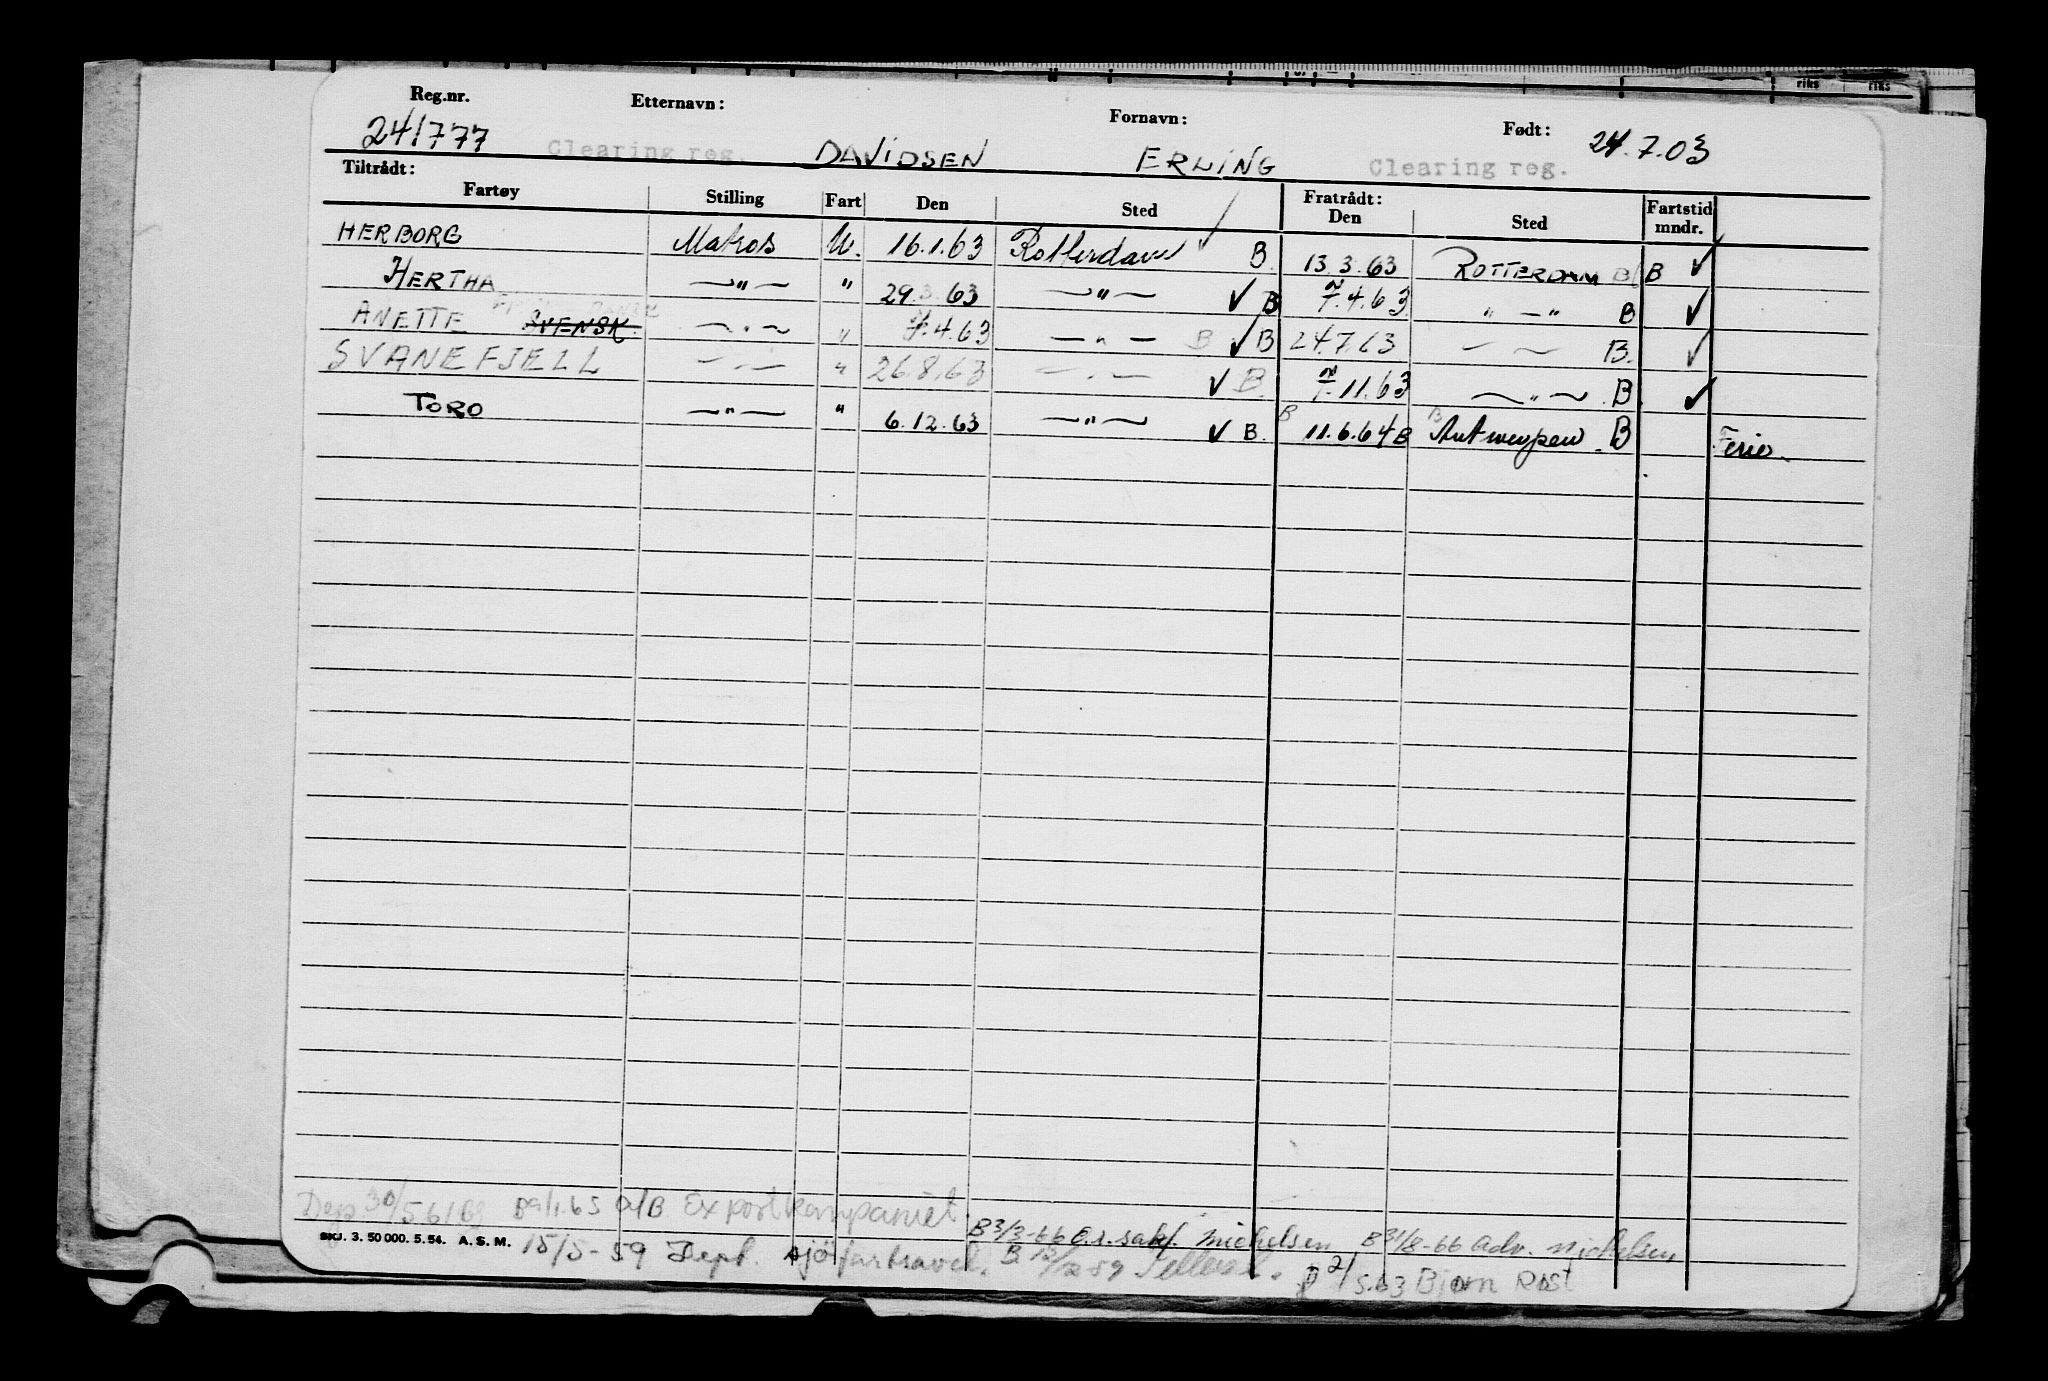 Reg.nr. Etternavn: Fornavn: Født:
241777 Clearing reg. DAVIDSEN ERLING Clearing reg. 24.7.03
Tiltrådt: Fratrådt:
Fartøy Stilling Fart Den Sted Den Sted Fartstid mndr.
HERBORG Matros U. 16.1.63 Rotterdam B. 13.3.63 ROTTERDAM B B ✓
HERTHA —"— " 29.3.63 —"— ✓ B 7.4.63 " — " B ✓
ANETTE SVENSK. —"— " 7.4.63 — " — B ✓ B 24.7.63 — — B. ✓
SVANEFJELL —"— " 26.8.63 — " — ✓ B. 7.11.63 —"— B ✓
TORO —"— " 6.12.63 —"— ✓ B. B 11.6.64 B B Antwerpen B Ferie.
Dep 30/5 61 B9/1.65 A/B Exportkompaniet.
B 3/3-66 O.r.sakf. Michelsen B 31/8-66 Adv. Michelsen
SKJ. 3. 50 000. 5. 54. A. S. M. 15/5-59 Dept. Sjöfartsavd. B 12/2 59
B 2/5.63 Bjørn Rist
riks riks